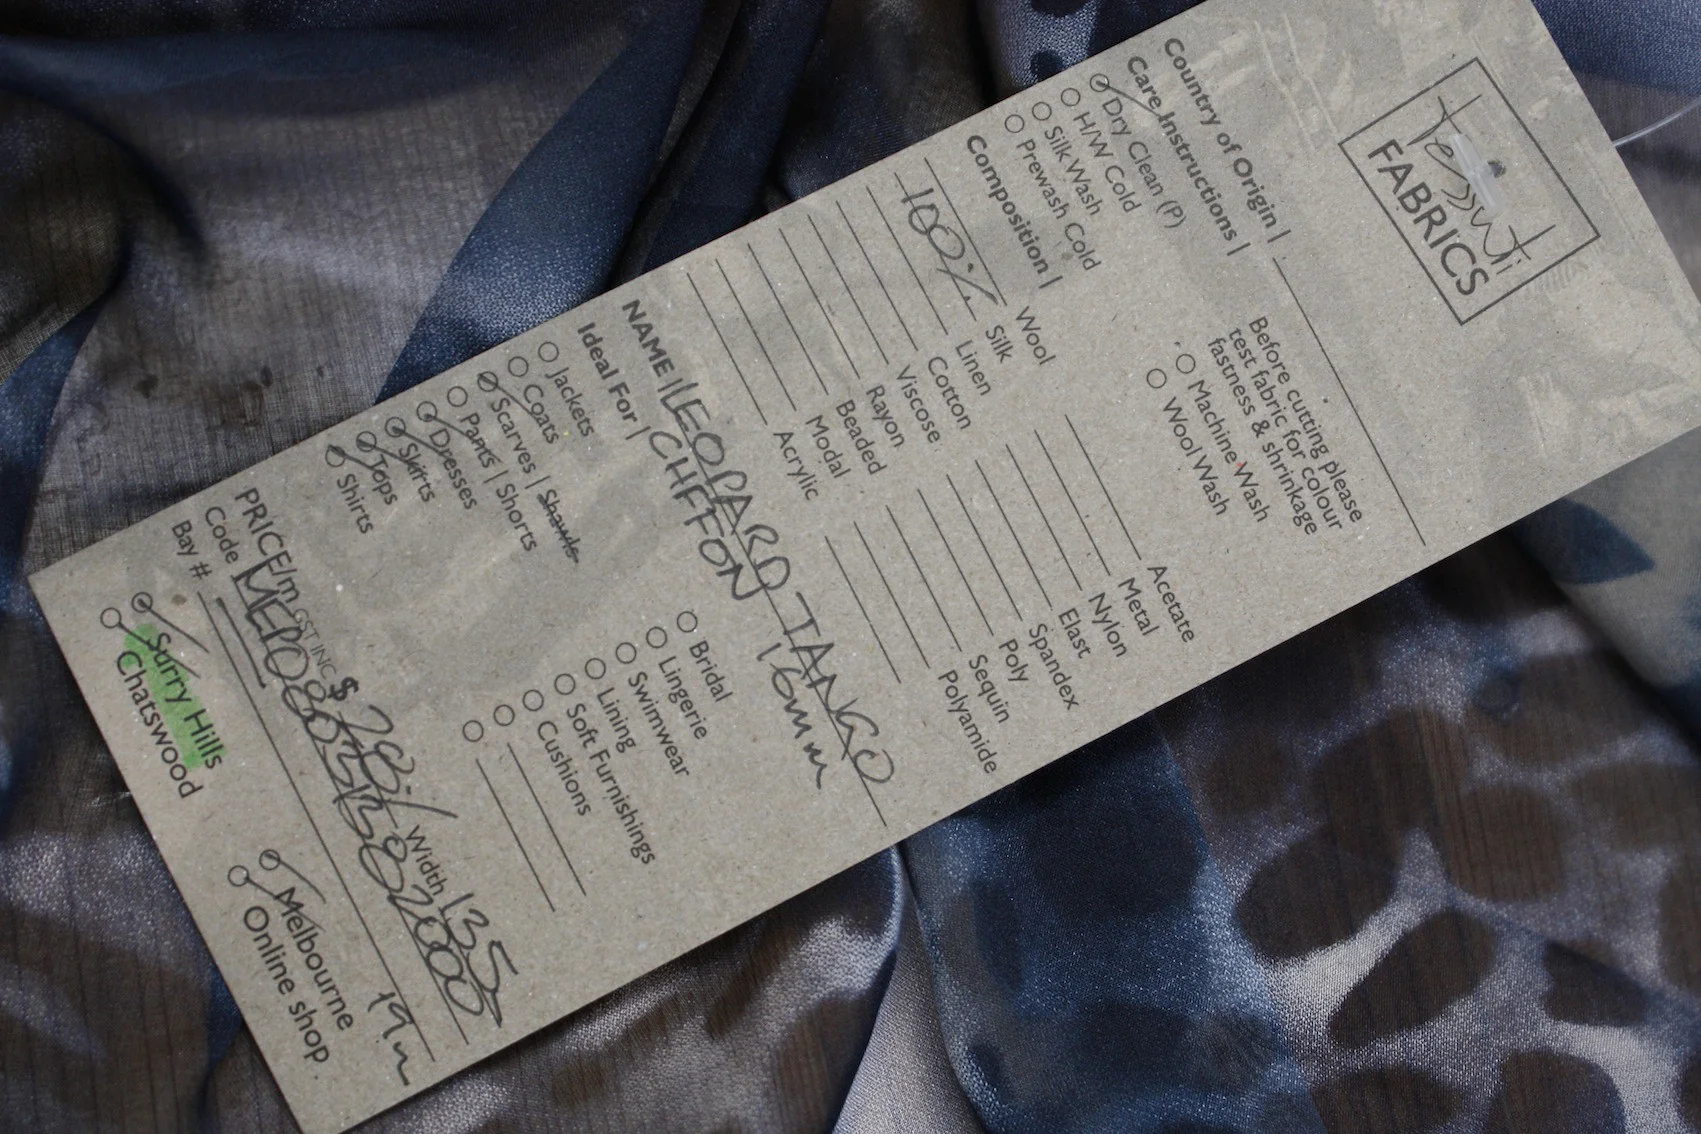 Tessuti
FABRICS
Country of Origin |
Care Instructions |
Dry Clean (P)
H/W Cold
Silk Wash
Prewash Cold
Before cutting please
test fabric for colour
fastness & shrinkage
Machine Wash
Wool Wash
Composition |
Wool
100% Silk
Linen
Cotton
Viscose
Rayon
Beaded
Modal
Acrylic
Acetate
Metal
Nylon
Elast
Spandex
Poly
Sequin
Polyamide
NAME | LEOPARD TANGO
CHIFFON 16mm
Ideal For |
Jackets
Coats
Scarves | Shawls
Pants | Shorts
Dresses
Skirts
Tops
Shirts
Bridal
Lingerie
Swimwear
Lining
Soft Furnishings
Cushions
PRICE/m GST INC $ Width 135
Code
Bay # 19m
Surry Hills
Chatswood
Melbourne
Online shop